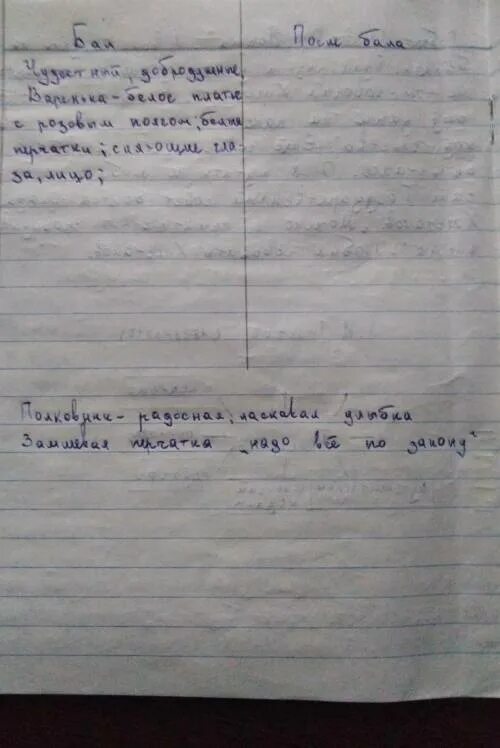 Бал После бала
Чудестный, добродушные,
Варенька-белое платье
с розовым поясом; белые
перчатки; сияющие гла-
за, лицо;
Полковник- радосная, ласковая улыбка
Замшевая перчатка „надо всё по закону"